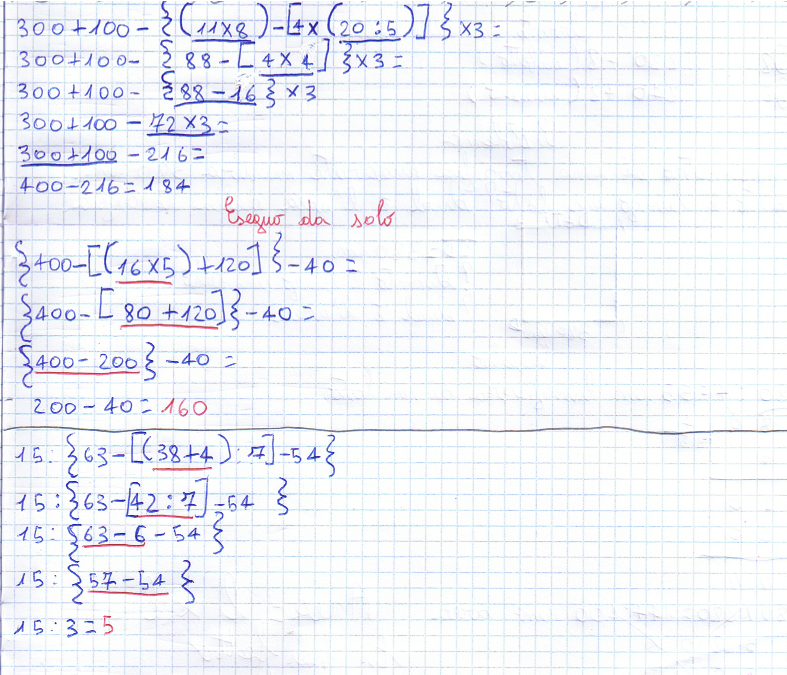 300+100-{(11×8)-[4×(20:5)]}×3=
300+100-{88-[4×4]}×3=
300+100-{88-16}×3
300+100-72×3=
300+100-216=
400-216=184
Eseguo da solo
{400-[(16×5)+120]}-40=
{400-[80+120]}-40=
{400-200}-40=
200-40=160
15:{63-[(38+4):7]-54}
15:{63-[42:7]-54}
15:{63-6-54}
15:{57-54}
15:3=5